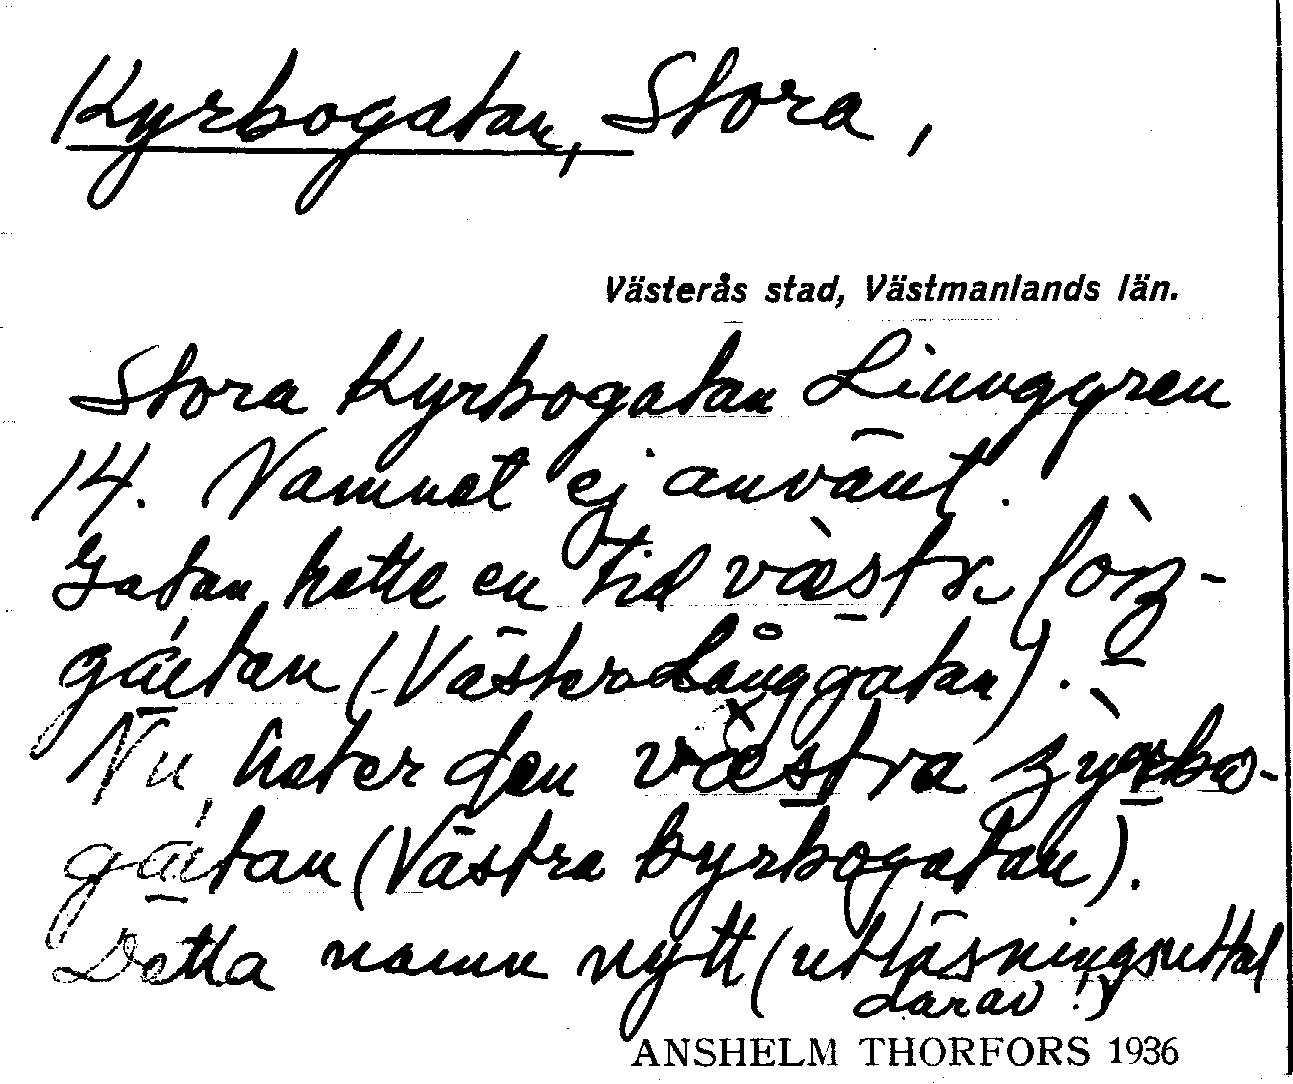 Kyrbogatan, Stora,
Västerås stad, Västmanlands län.
Stora Kyrbogatan Ljunggren
14. Namnet ej använt.
Gatan hette en tid væstra
gátan (Västra Långgatan).
Nu heter den væstra
gátan (Västra Kyrbogatan).
Detta namn nytt (utläsningsuttal
darav!)
ANSHELM THORFORS 1936